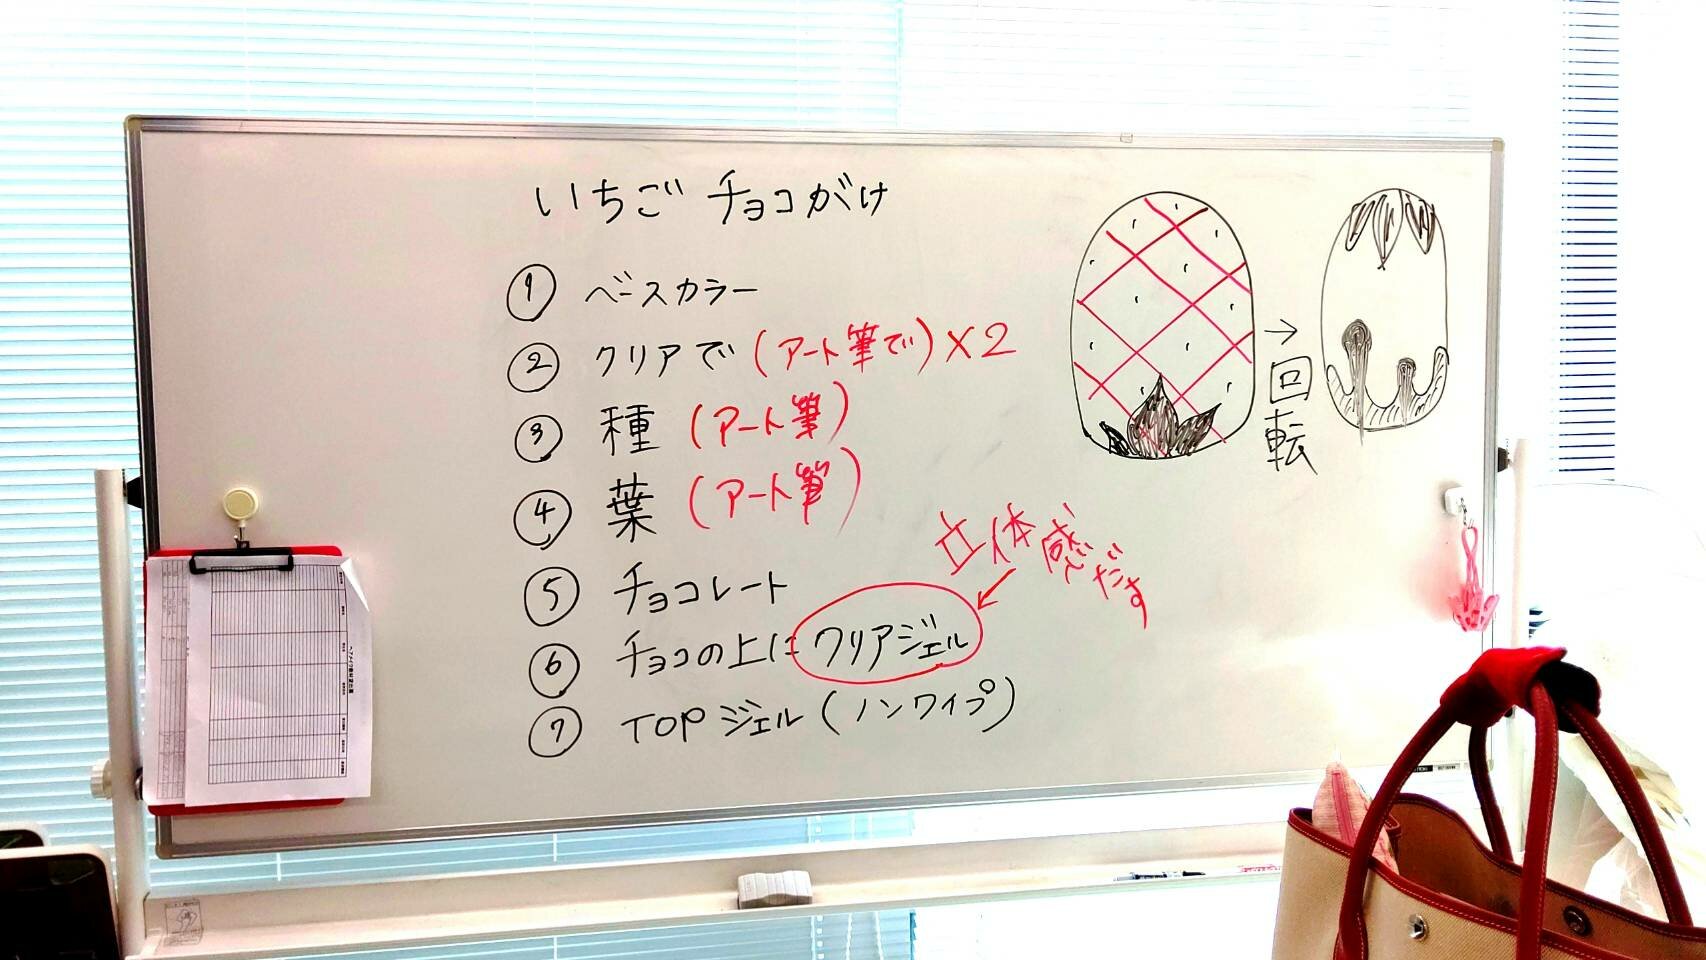 いちごチョコがけ
① ベースカラー
② クリアで(アート筆で)×2
③ 種 (アート筆)
④ 葉 (アート筆)
⑤ チョコレート
⑥ チョコの上にクリアジェル
立体感だす
⑦ TOPジェル(ノンワイプ)
→
回転